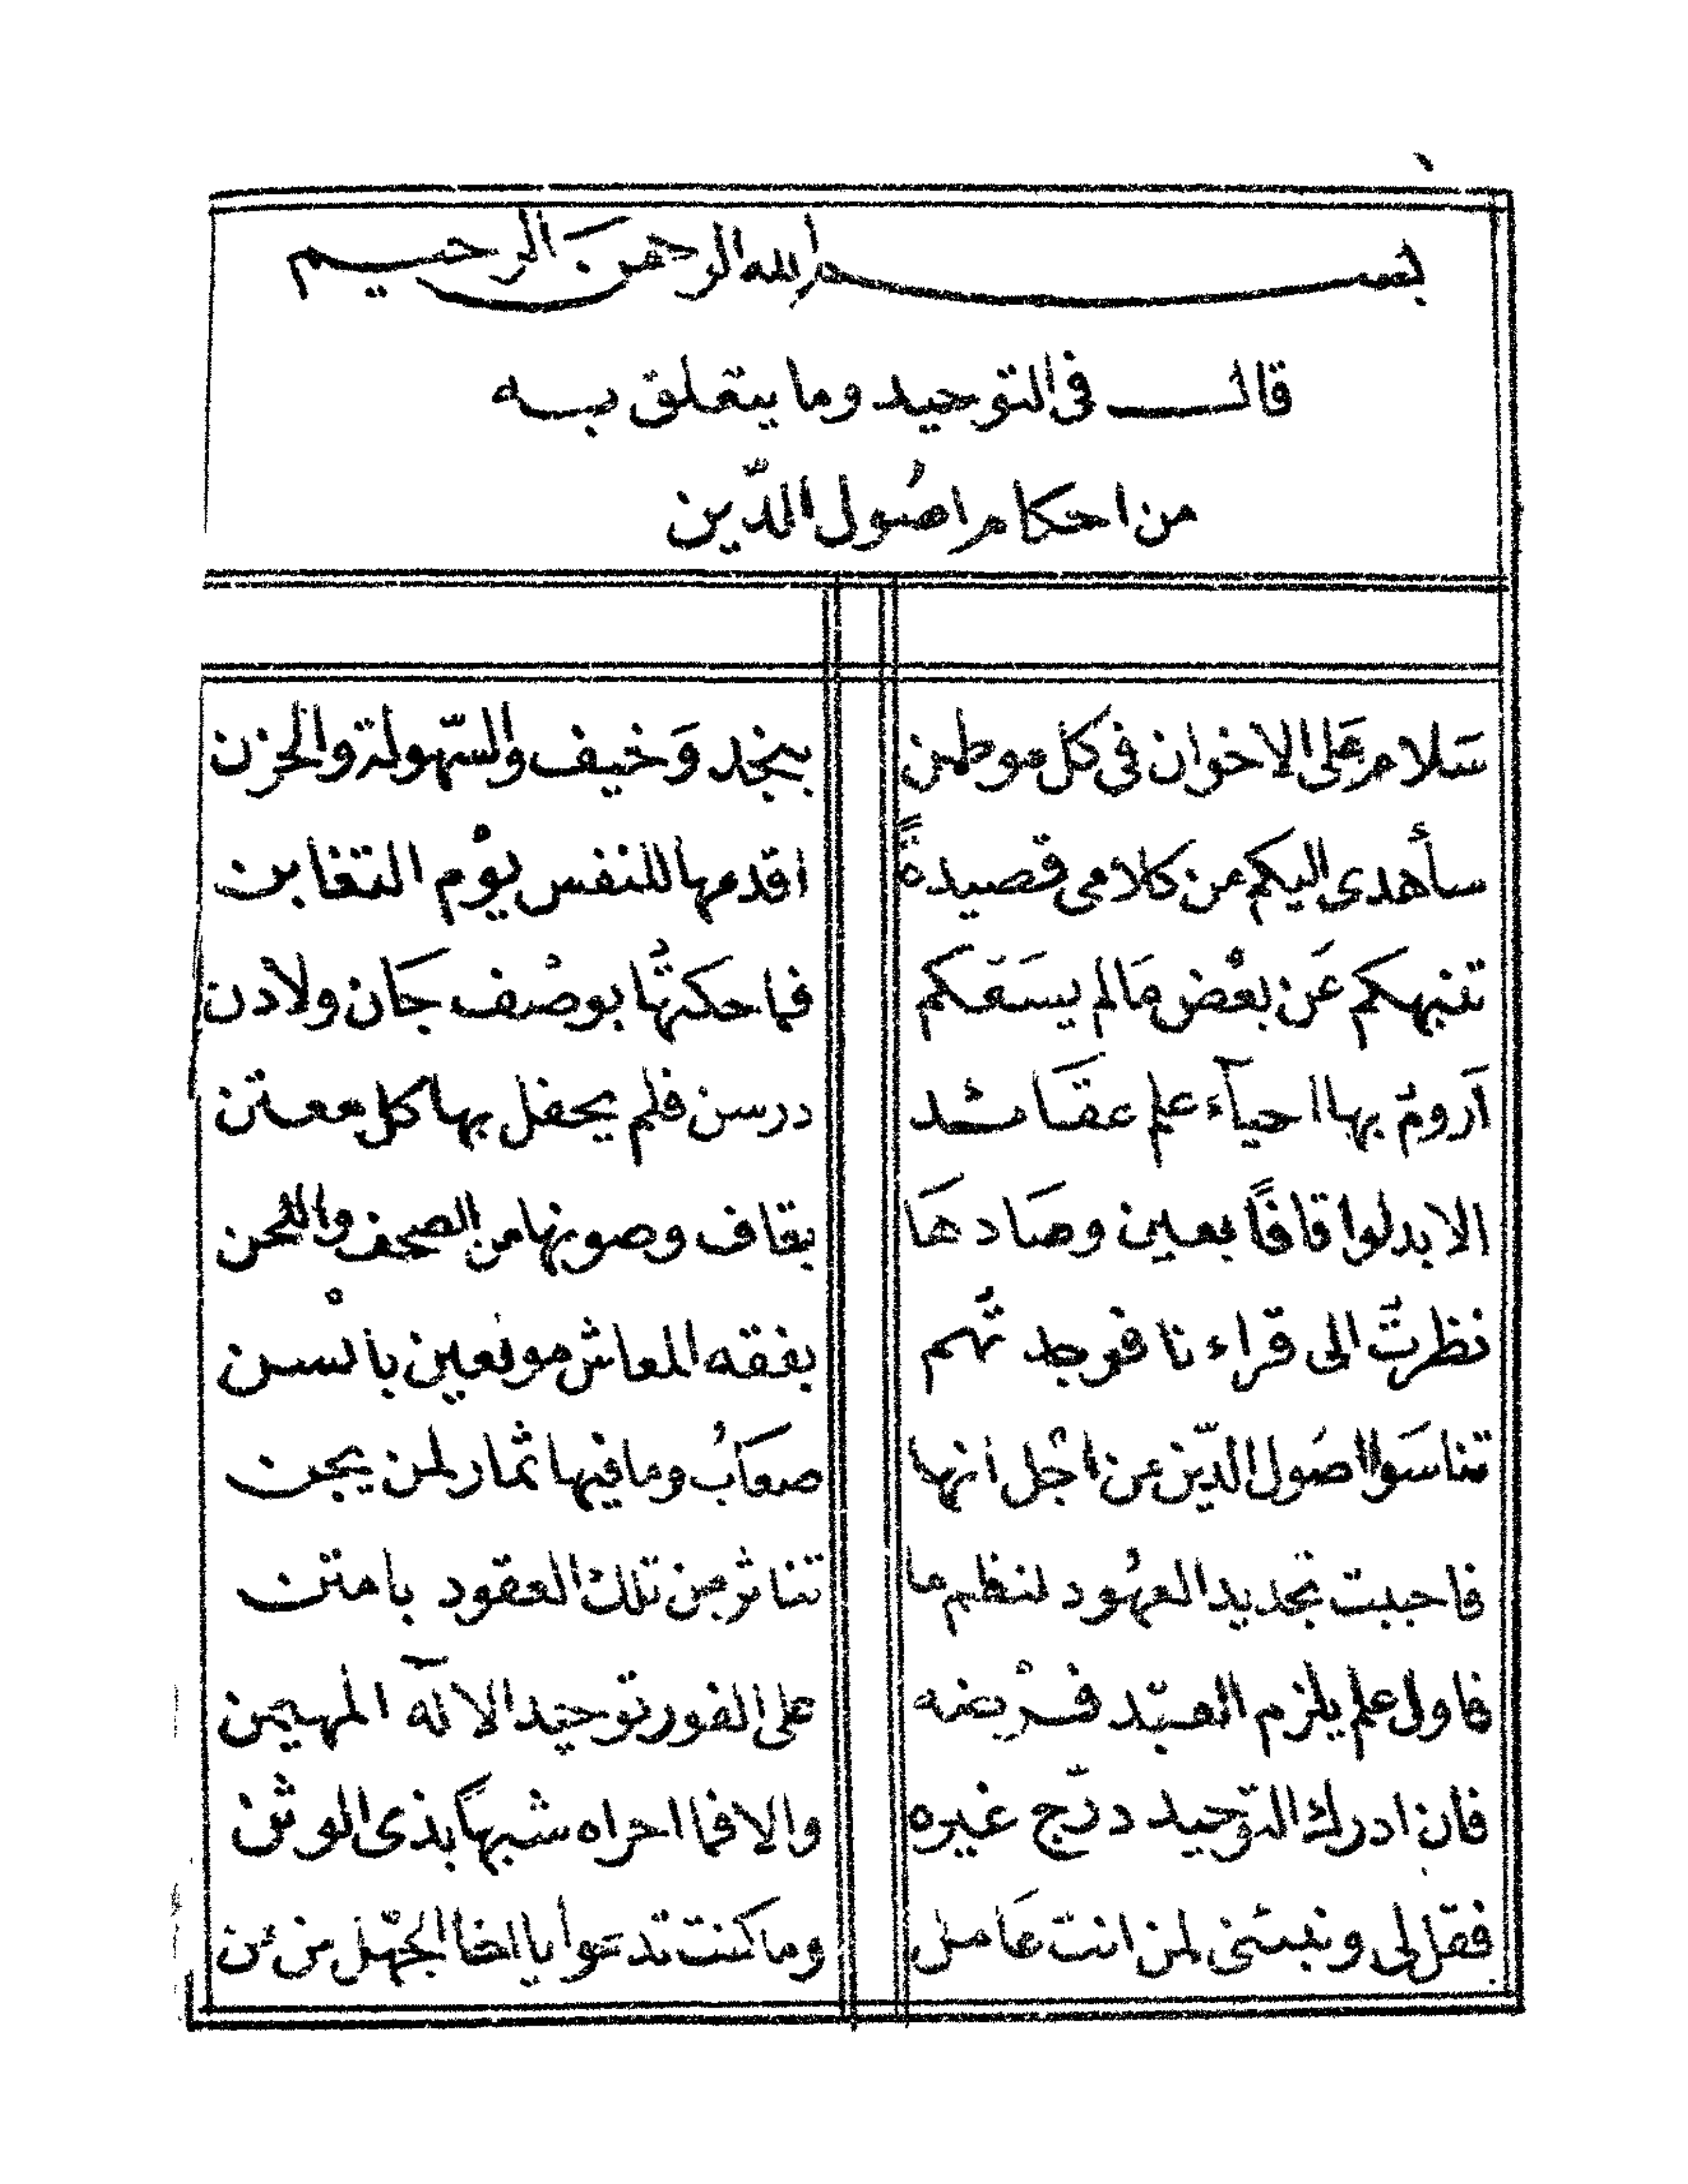 بسم الله الرحمن الرحيم
قال في التوحيد وما يتعلق به
من احكام اصُول الدّين
سَلام عَلى الاخوان في كل موطن بنجد وَخيف والسّهولة والحزن
سأهدى اليكم من كلامى قصيدةً اقدمها للنفس يوْم التغابن
تنبهكم عَن بعْض مَالم يسَعَكم فما حكمتُها بوصْف جَان ولادن
اَرومُ بها احياَء علم عقَائد درسن فلم يحفل بها كل معتن
الا بدلوا قافًا بعين وصَادهَا بقاف وصونها من الصحف واللحن
نظرتُ الى قراءنا فوجدتُهم بفقه المعاش مولعين بالسن
تناسَوا اصُول الدّين عن اجْل انها صعَابُ وما فيها ثمار لمن يجن
فاحببت تجديد العهُود لنظم ما تناثر من تلك العقود بامتن
فاول علم يلزم العبْد فرْضه على الفور توحيد الاله المهيمن
فان ادرك التوحيد درّج غيره والا فما احراه شبهًا بذى الوثن
فقل لى ونبئنى لمن انت عَامل وما كنت تدعوا يا اخا الجهْل من